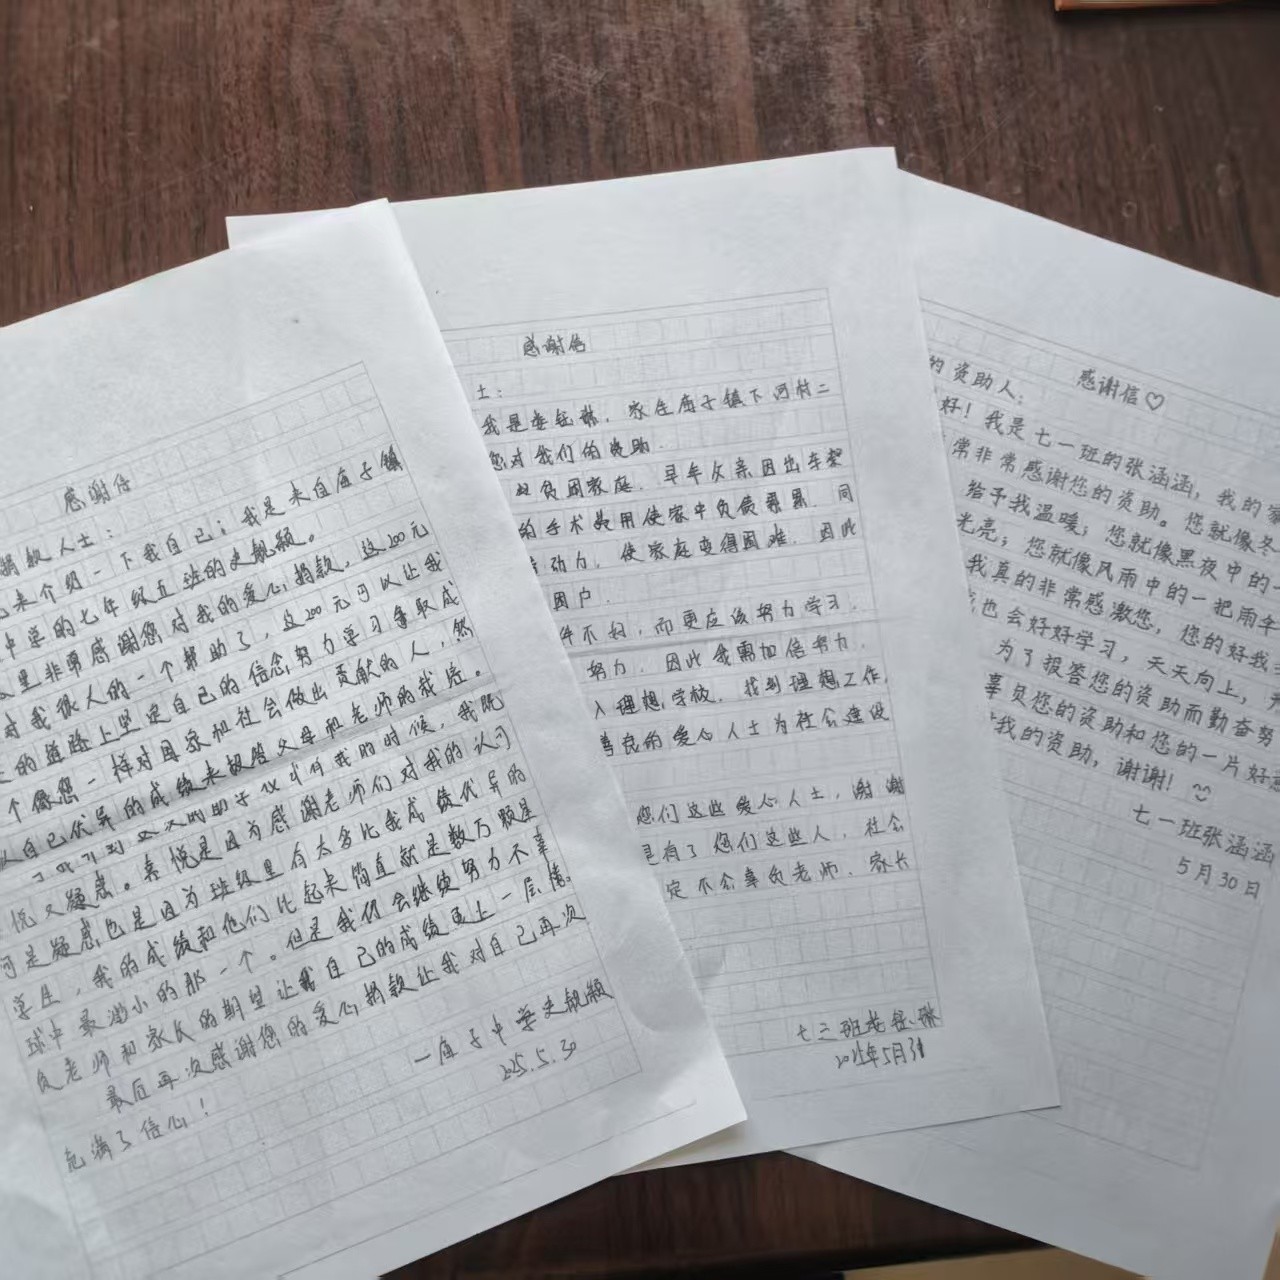 感谢信
捐款人士：
来介绍一下我自己；我是来自庙子镇
中学的七年级五班的史靓颖。
里非常感谢您对我的爱心捐款，这200元
对我很人的一个帮助了，这200元可以让我
的道路上坚定自己的信念努力学习争取成
个像您一样对国家和社会做出贡献的人，然
以自己优异的成绩来报答父母和老师的我
的时候，我既
悦又疑惑。喜悦是因为感谢老师们对我的认可
可是疑惑也是因为班级里有太多比我成绩优异的
学生，我的成绩和他们比起来简直就是数万颗星
球中最渺小的那一个。但是我仍会继续努力不辜
负老师和家长的期望让我自己的成绩更上一层楼。
最后再次感谢您的爱心捐款让我对自己再次
充满了信心！
庙子中学史靓颖
2025.5.30
感谢信
士：
我是娄钰琳，家住庙子镇下河村二
您对我们的资助．
贫困家庭．早年父亲因出车祸
的手术费用使家中负债累累．同
劳动力，使家庭变得困难．因此
困户．
件不好，而更应该努力学习．
努力．因此我需加倍努力．
入理想学校．找到理想工作．
善良的爱心人士为社会建设
您们这些爱心人士，谢谢
是有了您们这些人，社会
定不会辜负老师、家长
七三班娄钰琳
感谢信♡
的资助人：
好！我是七一班的张涵涵，我的家
常非常感谢您的资助。您就像冬
给予我温暖；您就像黑夜中的一
光亮；您就像风雨中的一把雨伞
我真的非常感激您，您的好我
也会好好学习，天天向上，
为了报答您的资助而勤奋努
辜负您的资助和您的一片好意
我的资助，谢谢！
七一班张涵涵
5月30日